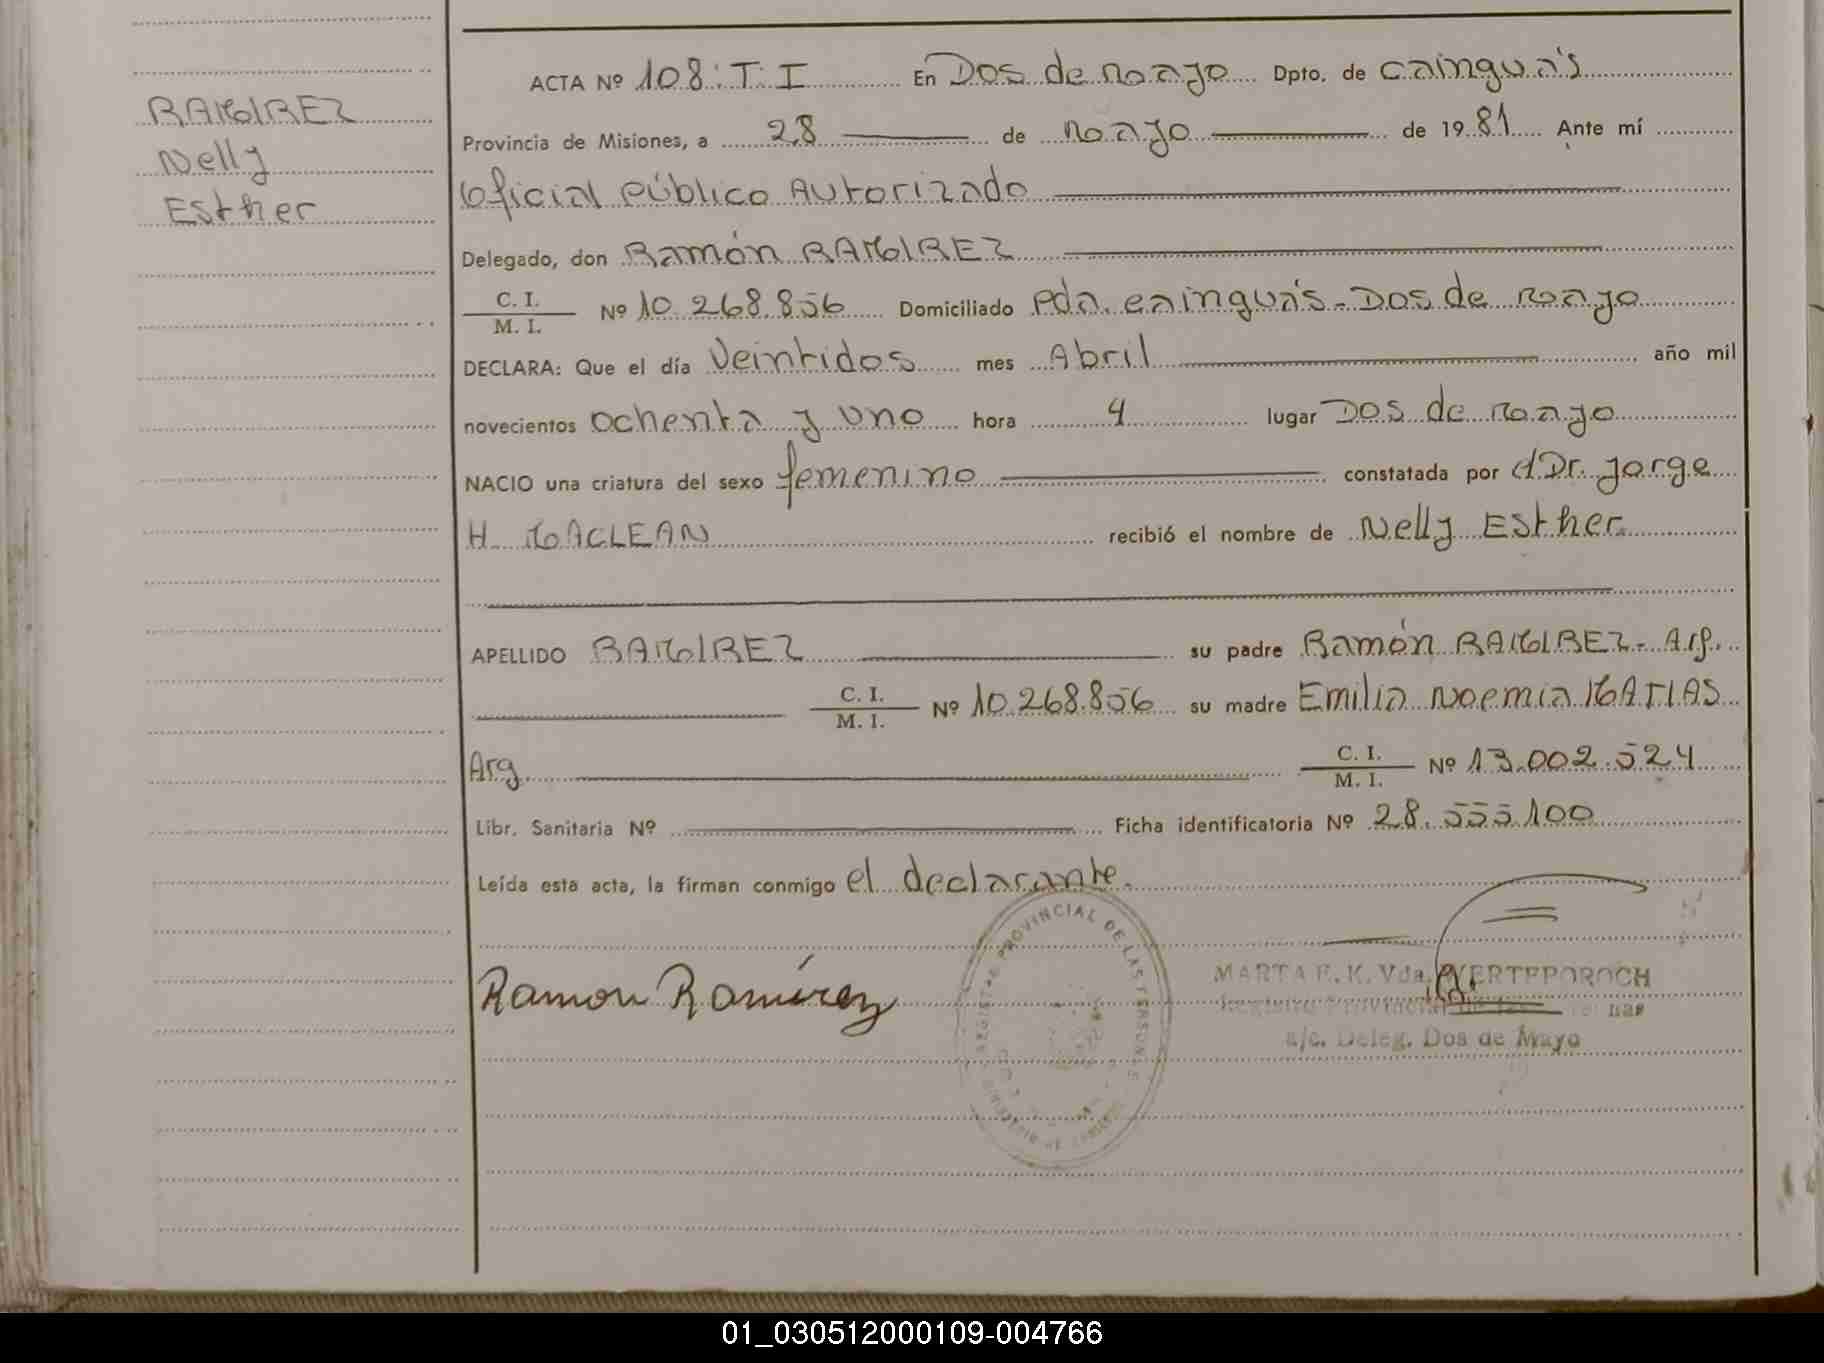 RAMIREZ
Nelly
Esther
ACTA Nº 108: T: I En Dos de mayo Dpto. de cainguás
Provincia de Misiones, a 28 de mayo de 1981 Ante mí
Oficial Público Autorizado
Delegado, don Ramón RAMIREZ
C. I.
M. I. Nº 10.268.856 Domiciliado Pda. cainguás - Dos de mayo
DECLARA: Que el día Veintidos mes Abril año mil
novecientos ochenta y uno hora 4 lugar Dos de mayo
NACIO una criatura del sexo femenino constatada por dDr. Jorge
H. MACLEAN recibió el nombre de Nelly Esther
APELLIDO RAMIREZ su padre Ramón RAMIREZ - Arg.
C. I.
M. I. Nº 10.268.856 su madre Emilia Noemia MATIAS
Arg. C. I.
M. I. Nº 13.002.524
Libr. Sanitaria Nº Ficha identificatoria Nº 28.555.100
Leída esta acta, la firman conmigo el declarante.
Ramon Ramírez
REGISTRO PROVINCIAL DE LAS PERSONAS
MARTA E. K. Vda.
Registro Provincial de las
a/c. Deleg. Dos de Mayo
01_030512000109-004766